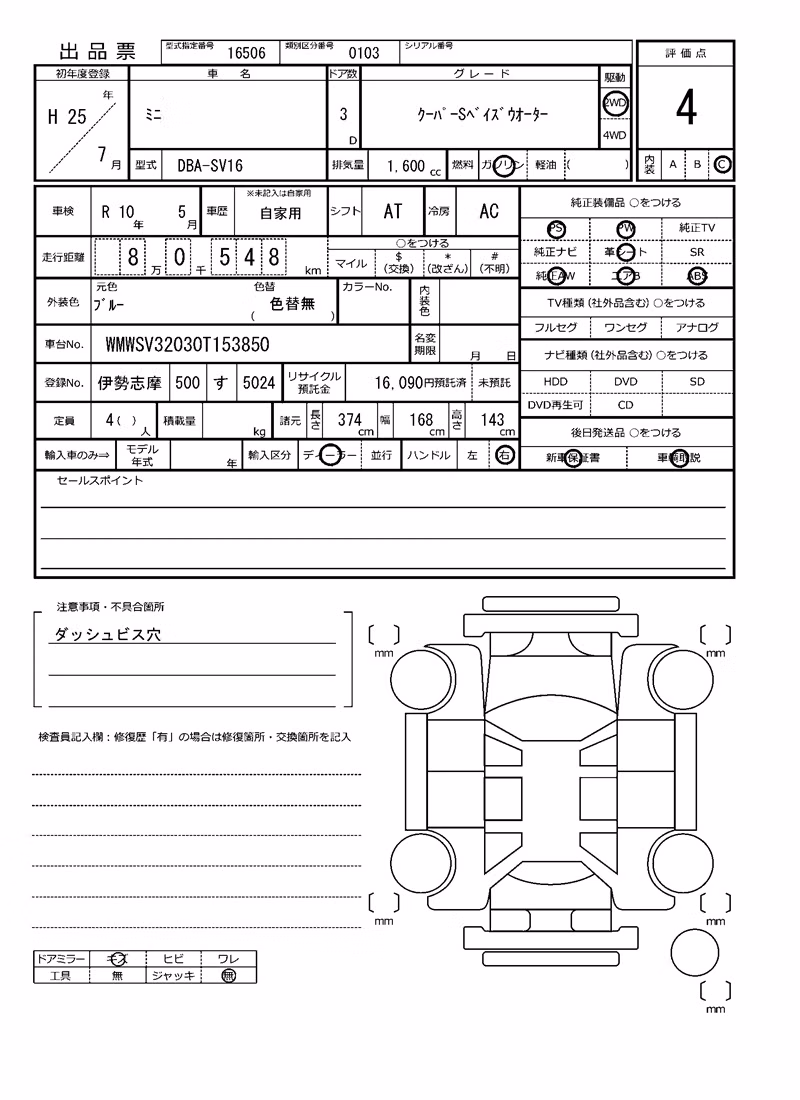 出品票 型式指定番号 16506 類別区分番号 0103 シリアル番号
評価点
4
内装 A B C
初年度登録 車名 ドア数 グレード 駆動
H 25 年 7 月 ミニ 3 D クーパーSベイズウオーター 2WD 4WD
型式 DBA-SV16 排気量 1,600 cc 燃料 ガソリン 軽油 ( )
車検 R 10 年 5 月 車歴 ※未記入は自家用 自家用 シフト AT 冷房 AC
走行距離 8 万 0 千 5 4 8 km ○をつける マイル $(交換) *(改ざん) #(不明)
外装色 元色 ブルー 色替 ( 色替無 ) カラーNo. 内装色
車台No. WMWSV32030T153850 名変期限 月 日
登録No. 伊勢志摩 500 す 5024 リサイクル預託金 16,090円預託済 未預託
定員 4( )人 積載量 kg 諸元 長さ 374cm 幅 168cm 高さ 143cm
輸入車のみ⇒ モデル年式 年 輸入区分 ディーラー 並行 ハンドル 左 右
純正装備品 ○をつける
PS PW 純正TV
純正ナビ 革シート SR
純正AW エアB ABS
TV種類(社外品含む)○をつける
フルセグ ワンセグ アナログ
ナビ種類(社外品含む)○をつける
HDD DVD SD
DVD再生可 CD
後日発送品 ○をつける
新車保証書 車輌取説
セールスポイント
注意事項・不具合箇所
ダッシュビス穴
検査員記入欄:修復歴「有」の場合は修復箇所・交換箇所を記入
ドアミラー キズ ヒビ ワレ
工具 無 ジャッキ 無
[ ] mm
[ ] mm
[ ] mm
[ ] mm
[ ] mm